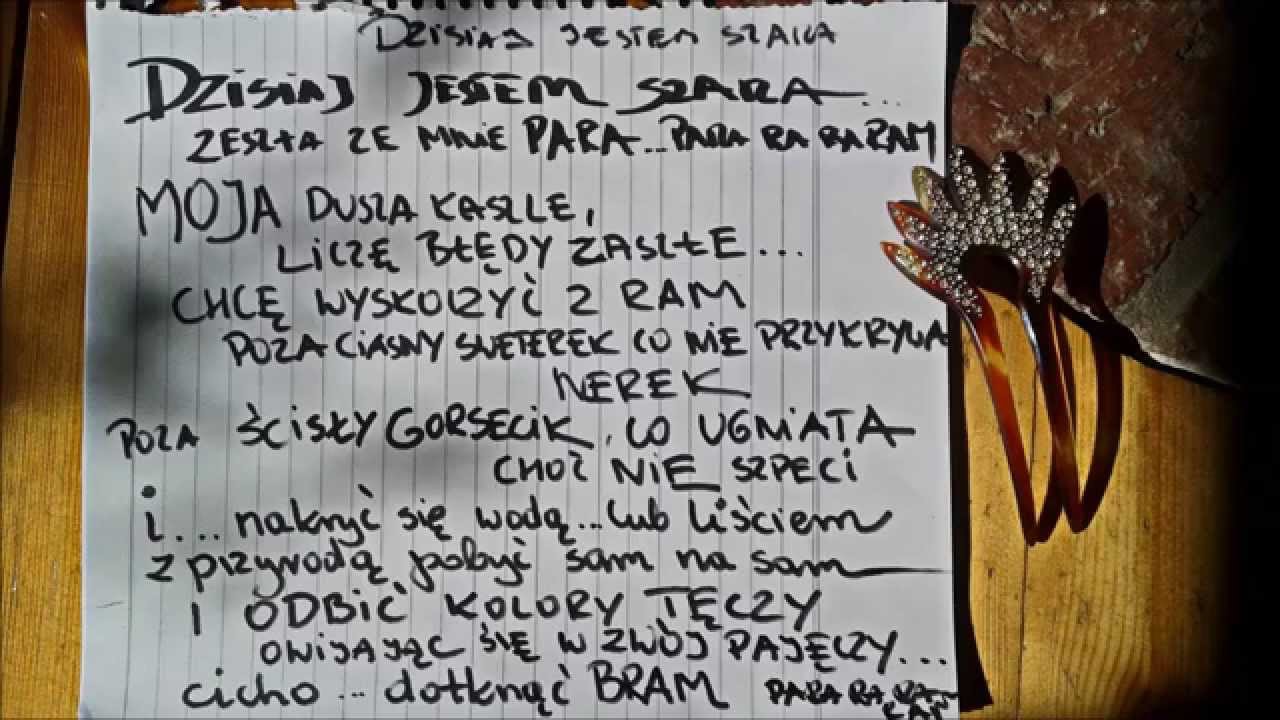 DZISIAJ JESTEM SZARA
DZISIAJ JESTEM SZARA...
ZESZŁA ZE MNIE PARA... PARA RA RARAM
MOJA DUSZA KASZLE,
LICZĘ BŁĘDY ZASZŁE...
CHCĘ WYSKOCZYĆ Z RAM
POZA CIASNY SWETEREK CO NIE PRZYKRYWA
NEREK
POZA ŚCISŁY GORSECIK, CO UGNIATA
CHOĆ NIE SZPECI
i.... nakryć się wodą...lub liściem
z przyrodą pobyć sam na sam
I ODBIĆ KOLORY TĘCZY
OWIJAJĄC SIĘ W ZWÓJ PAJĘCZY...
cicho ... dotknąć BRAM PARA RA RA
RAM